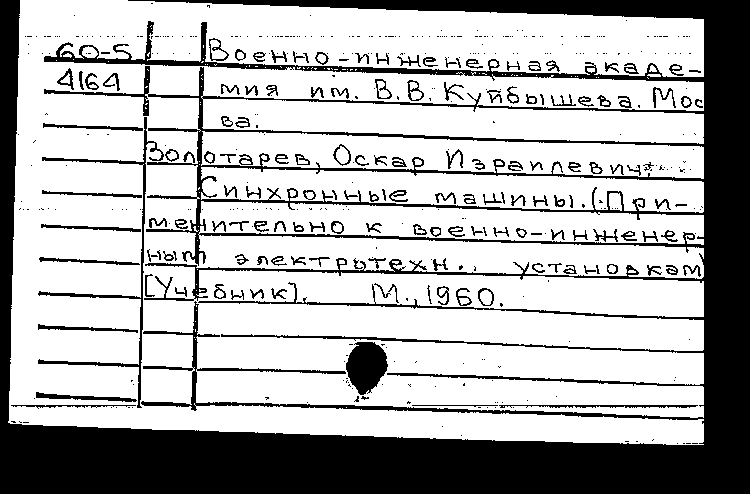 60-5 Военно-инженерная акаде-
4164 мия им. В.В. Куйбышева. Мос
ва.
Золотарев, Оскар Израилевич.
Синхронные машины. (При-
менительно к военно-инженер-
ным электротехн. установкам)
[Учебник]. М., 1960.